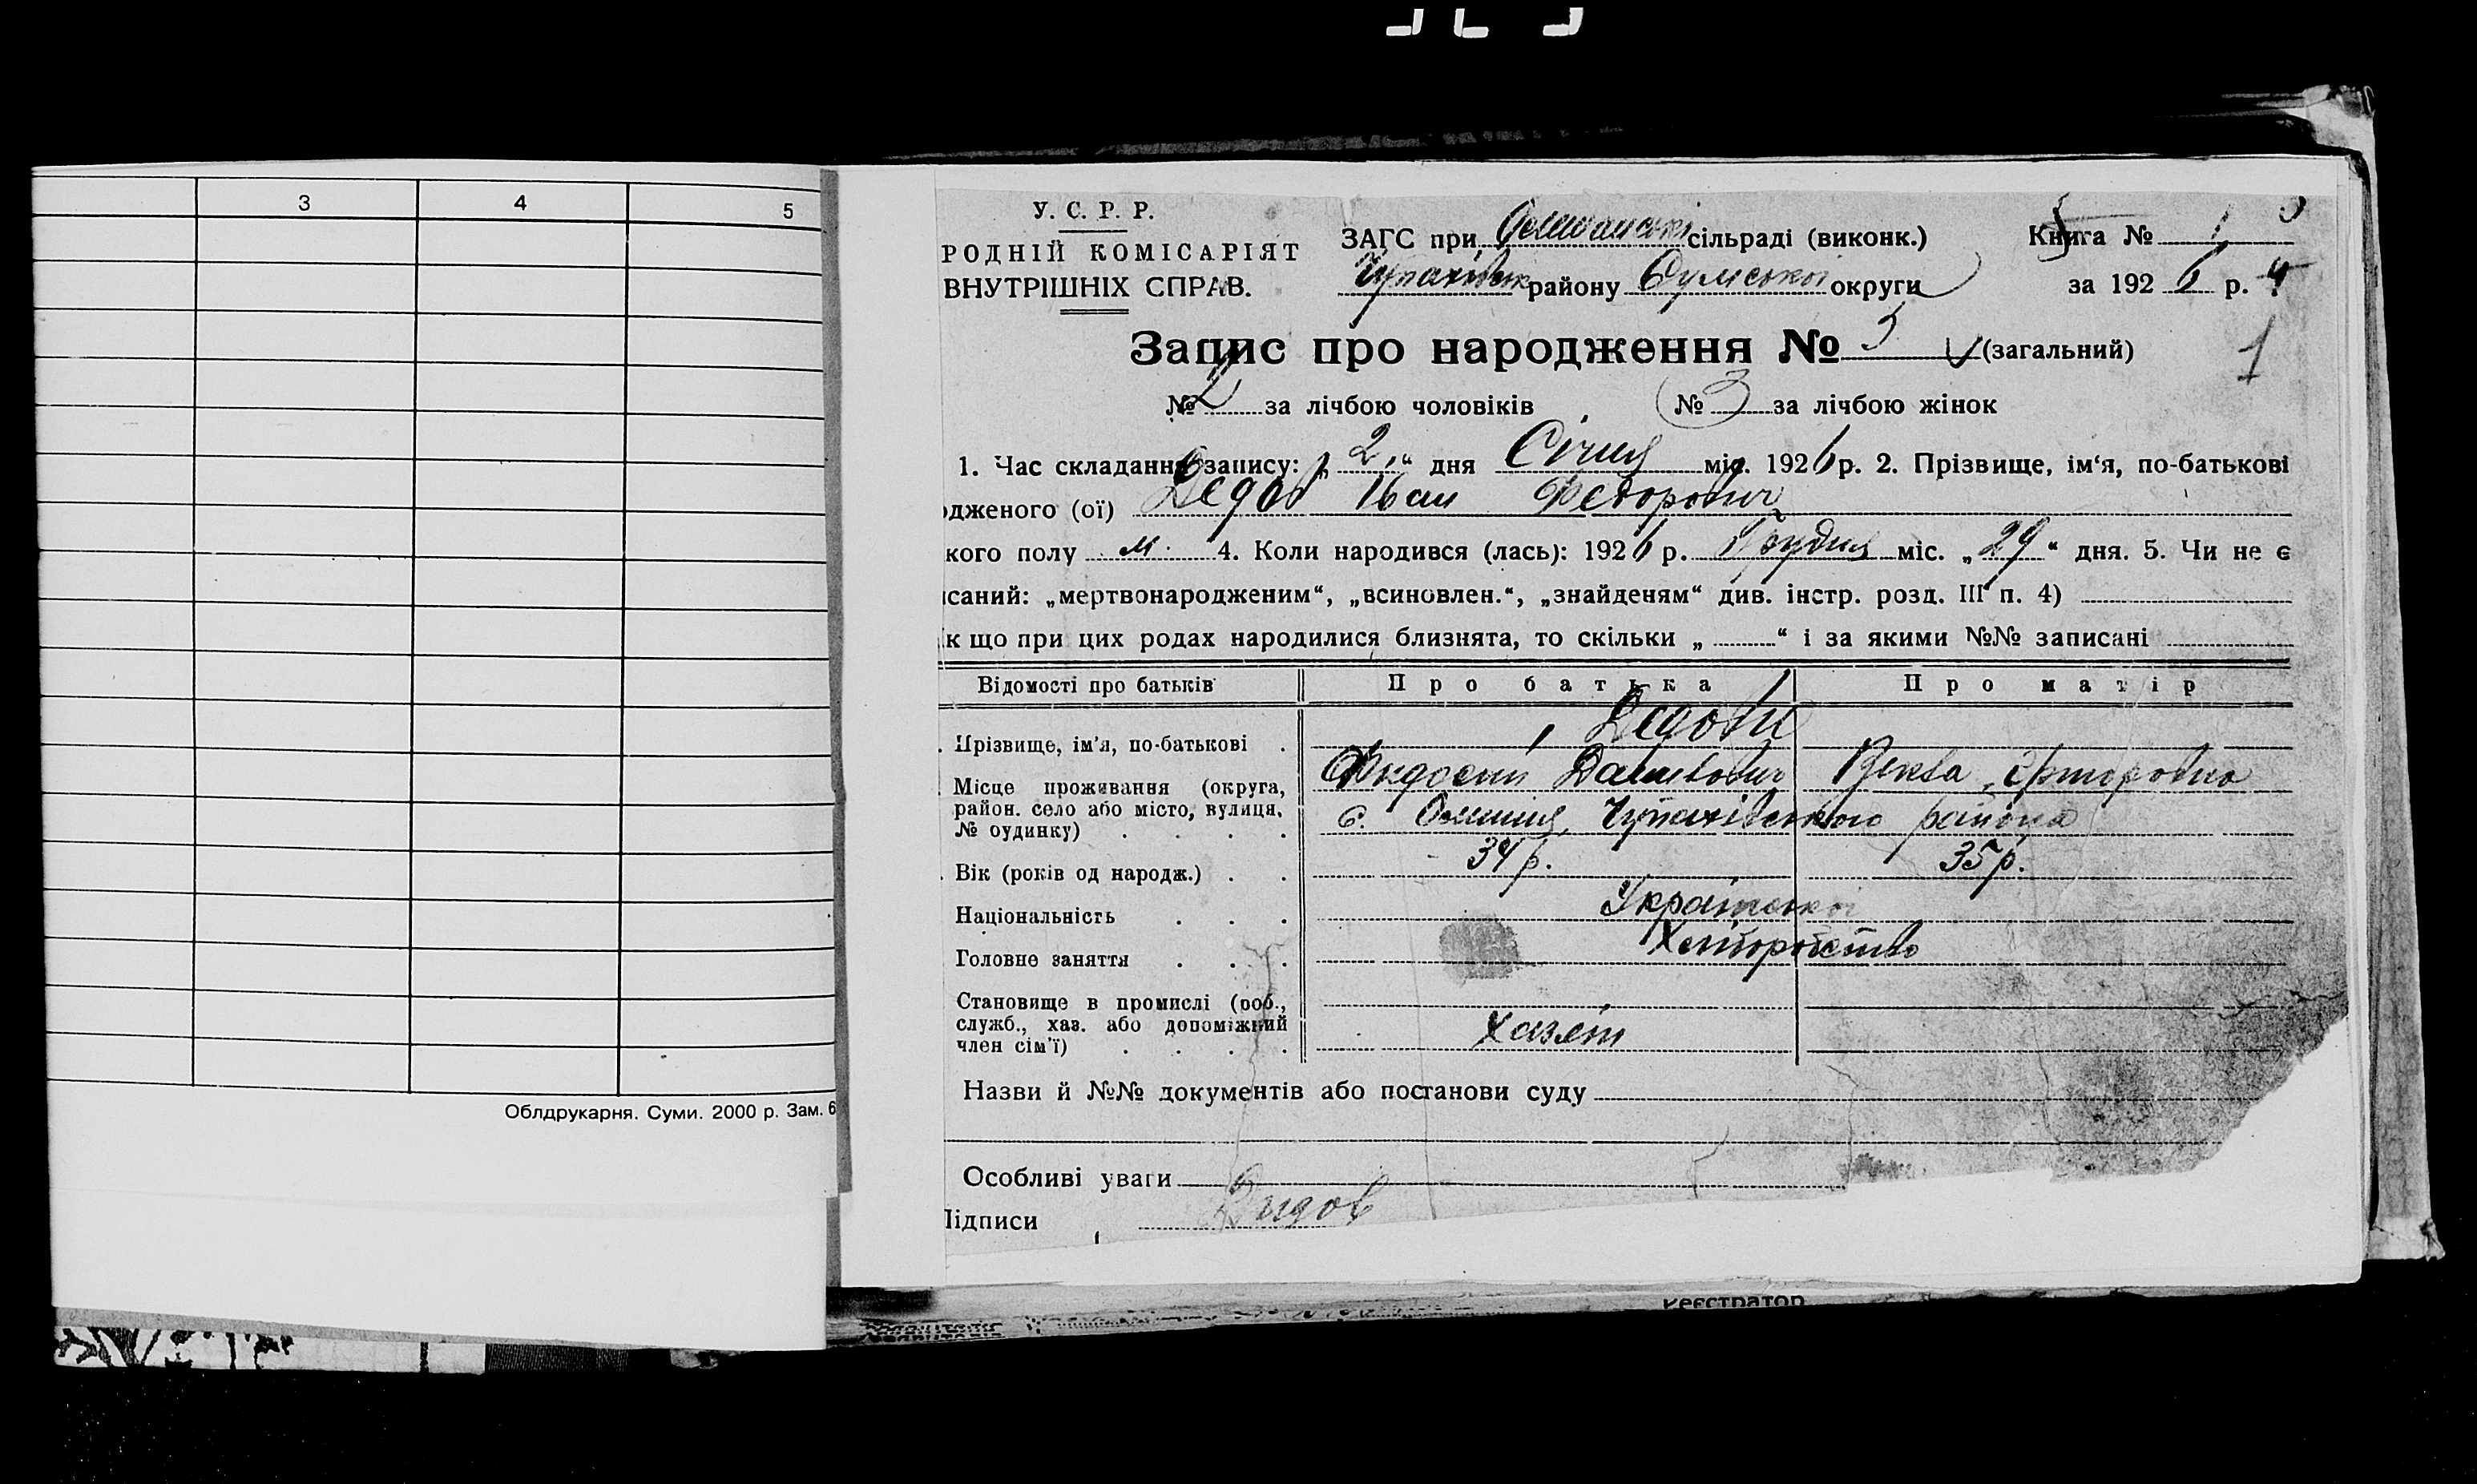 3 4 5
Облдрукарня. Суми. 2000 р. Зам. 6
У. С. Р. Р.
РОДНІЙ КОМІСАРІЯТ
ВНУТРІШНІХ СПРАВ.
ЗАГС при сільраді (виконк.)
району Сумської округи
Книга № 1
за 1926 р. 4
1
Запис про народження № 5 (загальний)
№ 2 за лічбою чоловіків № 3 за лічбою жінок
1. Час складання запису: „ 2 “ дня Січня міс. 1926 р. 2. Прізвище, ім‘я, по-батькові
одженого (ої) Дедов Іван Федорович
кого полу м. 4. Коли народився (лась): 1926 р. Грудня міс. „ 29 “ дня. 5. Чи не є
исаний: „мертвонародженим“, „всиновлен.“, „знайденям“ див. інстр. розд. III п. 4)
к що при цих родах народилися близнята, то скільки „ “ і за якими №№ записані
Відомості про батьків Про батька Про матір
Прізвище, ім’я, по-батькові Дедови
Данилович
Місце проживання (округа,
район. село або місто, вулиця,
№ будинку)
с. Чупахівського района
Вік (років од народж.) 34 р. 35 р.
Національність Української
Головне заняття Хліборобство
Становище в промислі (роб.,
служб., хаз. або допоміжний
член сім’ї) Хазяїн
Назви й №№ документів або постанови суду
Особливі уваги
Підписи Дидов
Реєстратор